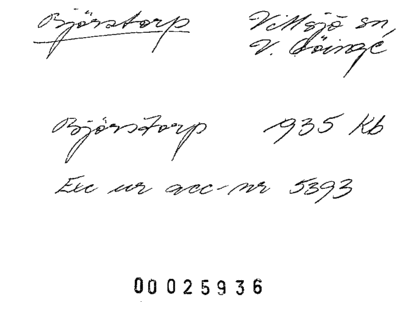 Björstorp Vittsjö sn,
V. Göinge
Björstorp 935 Kb
Exc ur acc-nr 5393
00025936